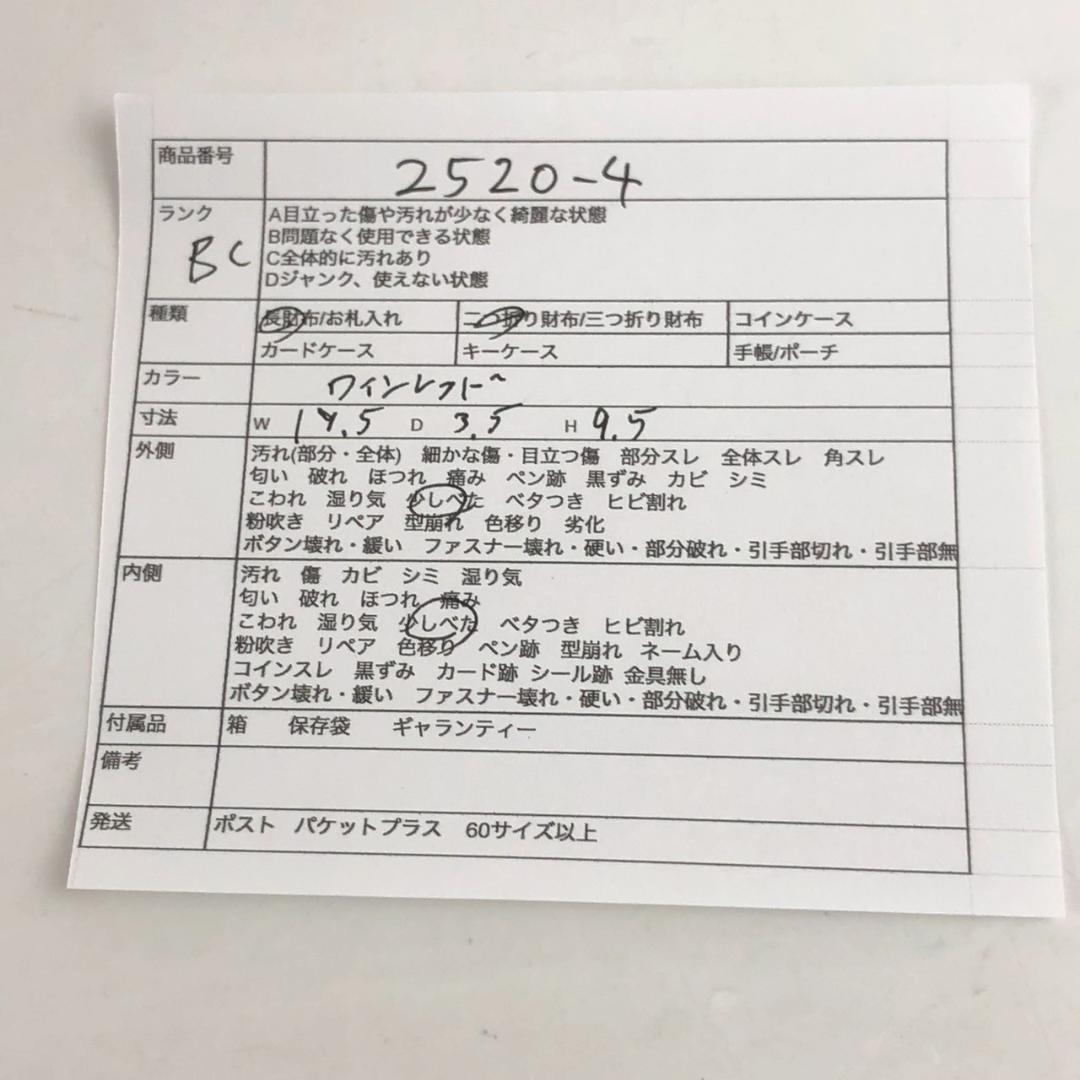 商品番号 2520-4
ランク BC
A目立った傷や汚れが少なく綺麗な状態
B問題なく使用できる状態
C全体的に汚れあり
Dジャンク、使えない状態
種類 長財布/お札入れ 二つ折り財布/三つ折り財布 コインケース
カードケース キーケース 手帳/ポーチ
カラー ワインレット゛
寸法 W D 3.5 H 9.5
外側 汚れ(部分・全体) 細かな傷・目立つ傷 部分スレ 全体スレ 角スレ
匂い 破れ ほつれ 痛み ペン跡 黒ずみ カビ シミ
こわれ 湿り気 少しべた ベタつき ヒビ割れ
粉吹き リペア 型崩れ 色移り 劣化
ボタン壊れ・緩い ファスナー壊れ・硬い・部分破れ・引手部切れ・引手部無
内側 汚れ 傷 カビ シミ 湿り気
匂い 破れ ほつれ 痛み
こわれ 湿り気 少しべた ベタつき ヒビ割れ
粉吹き リペア 色移り ペン跡 型崩れ ネーム入り
コインスレ 黒ずみ カード跡 シール跡 金具無し
ボタン壊れ・緩い ファスナー壊れ・硬い・部分破れ・引手部切れ・引手部無
付属品 箱 保存袋 ギャランティー
備考
発送 ポスト パケットプラス 60サイズ以上